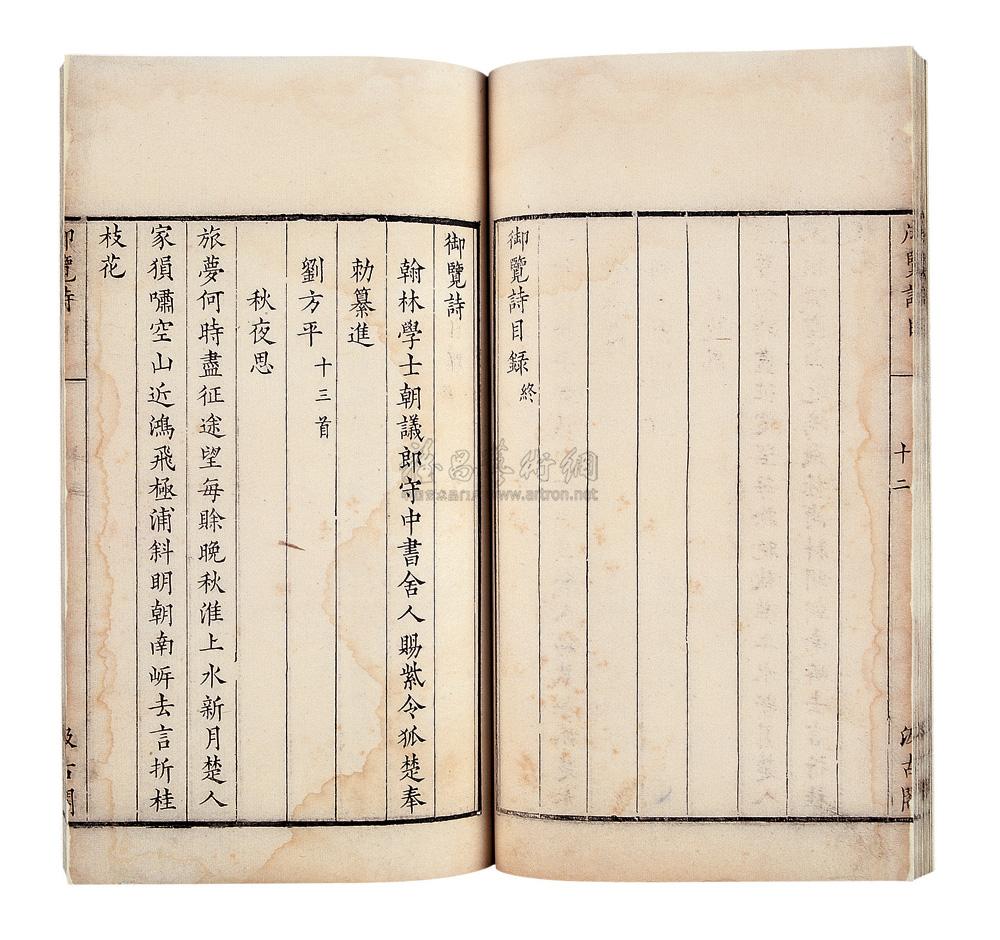 御覽詩目
十二
汲古閣
御覽詩目録終
御覽詩
翰林學士朝議郎守中書舍人賜紫令狐楚奉
勅纂進
劉方平 十三首
秋夜思
旅夢何時盡征途望每賒晚秋淮上水新月楚人
家猿嘯空山近鴻飛極浦斜明朝南岍去言折桂
枝花
御覽詩
汲古閣
www.artron.net